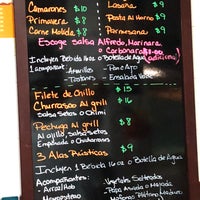 Camarones $10 Lasaña $9
Primavera $8 Pasta Al Horno $9
Carne Molida $8 Parmesana $9
Escoge Salsa Alfredo, Marinara
o Carbonara
Incluyen 1 Bebida 16oz o Botella de Agua (adicional)
1 acompañante: - Amarillos - Pan c/ Ajo
- Tostones - Ensalada
Filete de Chillo $15
Churrasco Al grill $16
Salsa Setas o Chimi
Pechuga Al grill $9
Al ajillo, salsa setas
Empanada o Chicharrones
3 Alas Rústicas $9
Incluyen 1 Bebida 16 oz o Botella de Agua
Acompañantes: - Vegetales Salteados
- Arroz/Hab - Papa Asada o Majada
- Mofongo